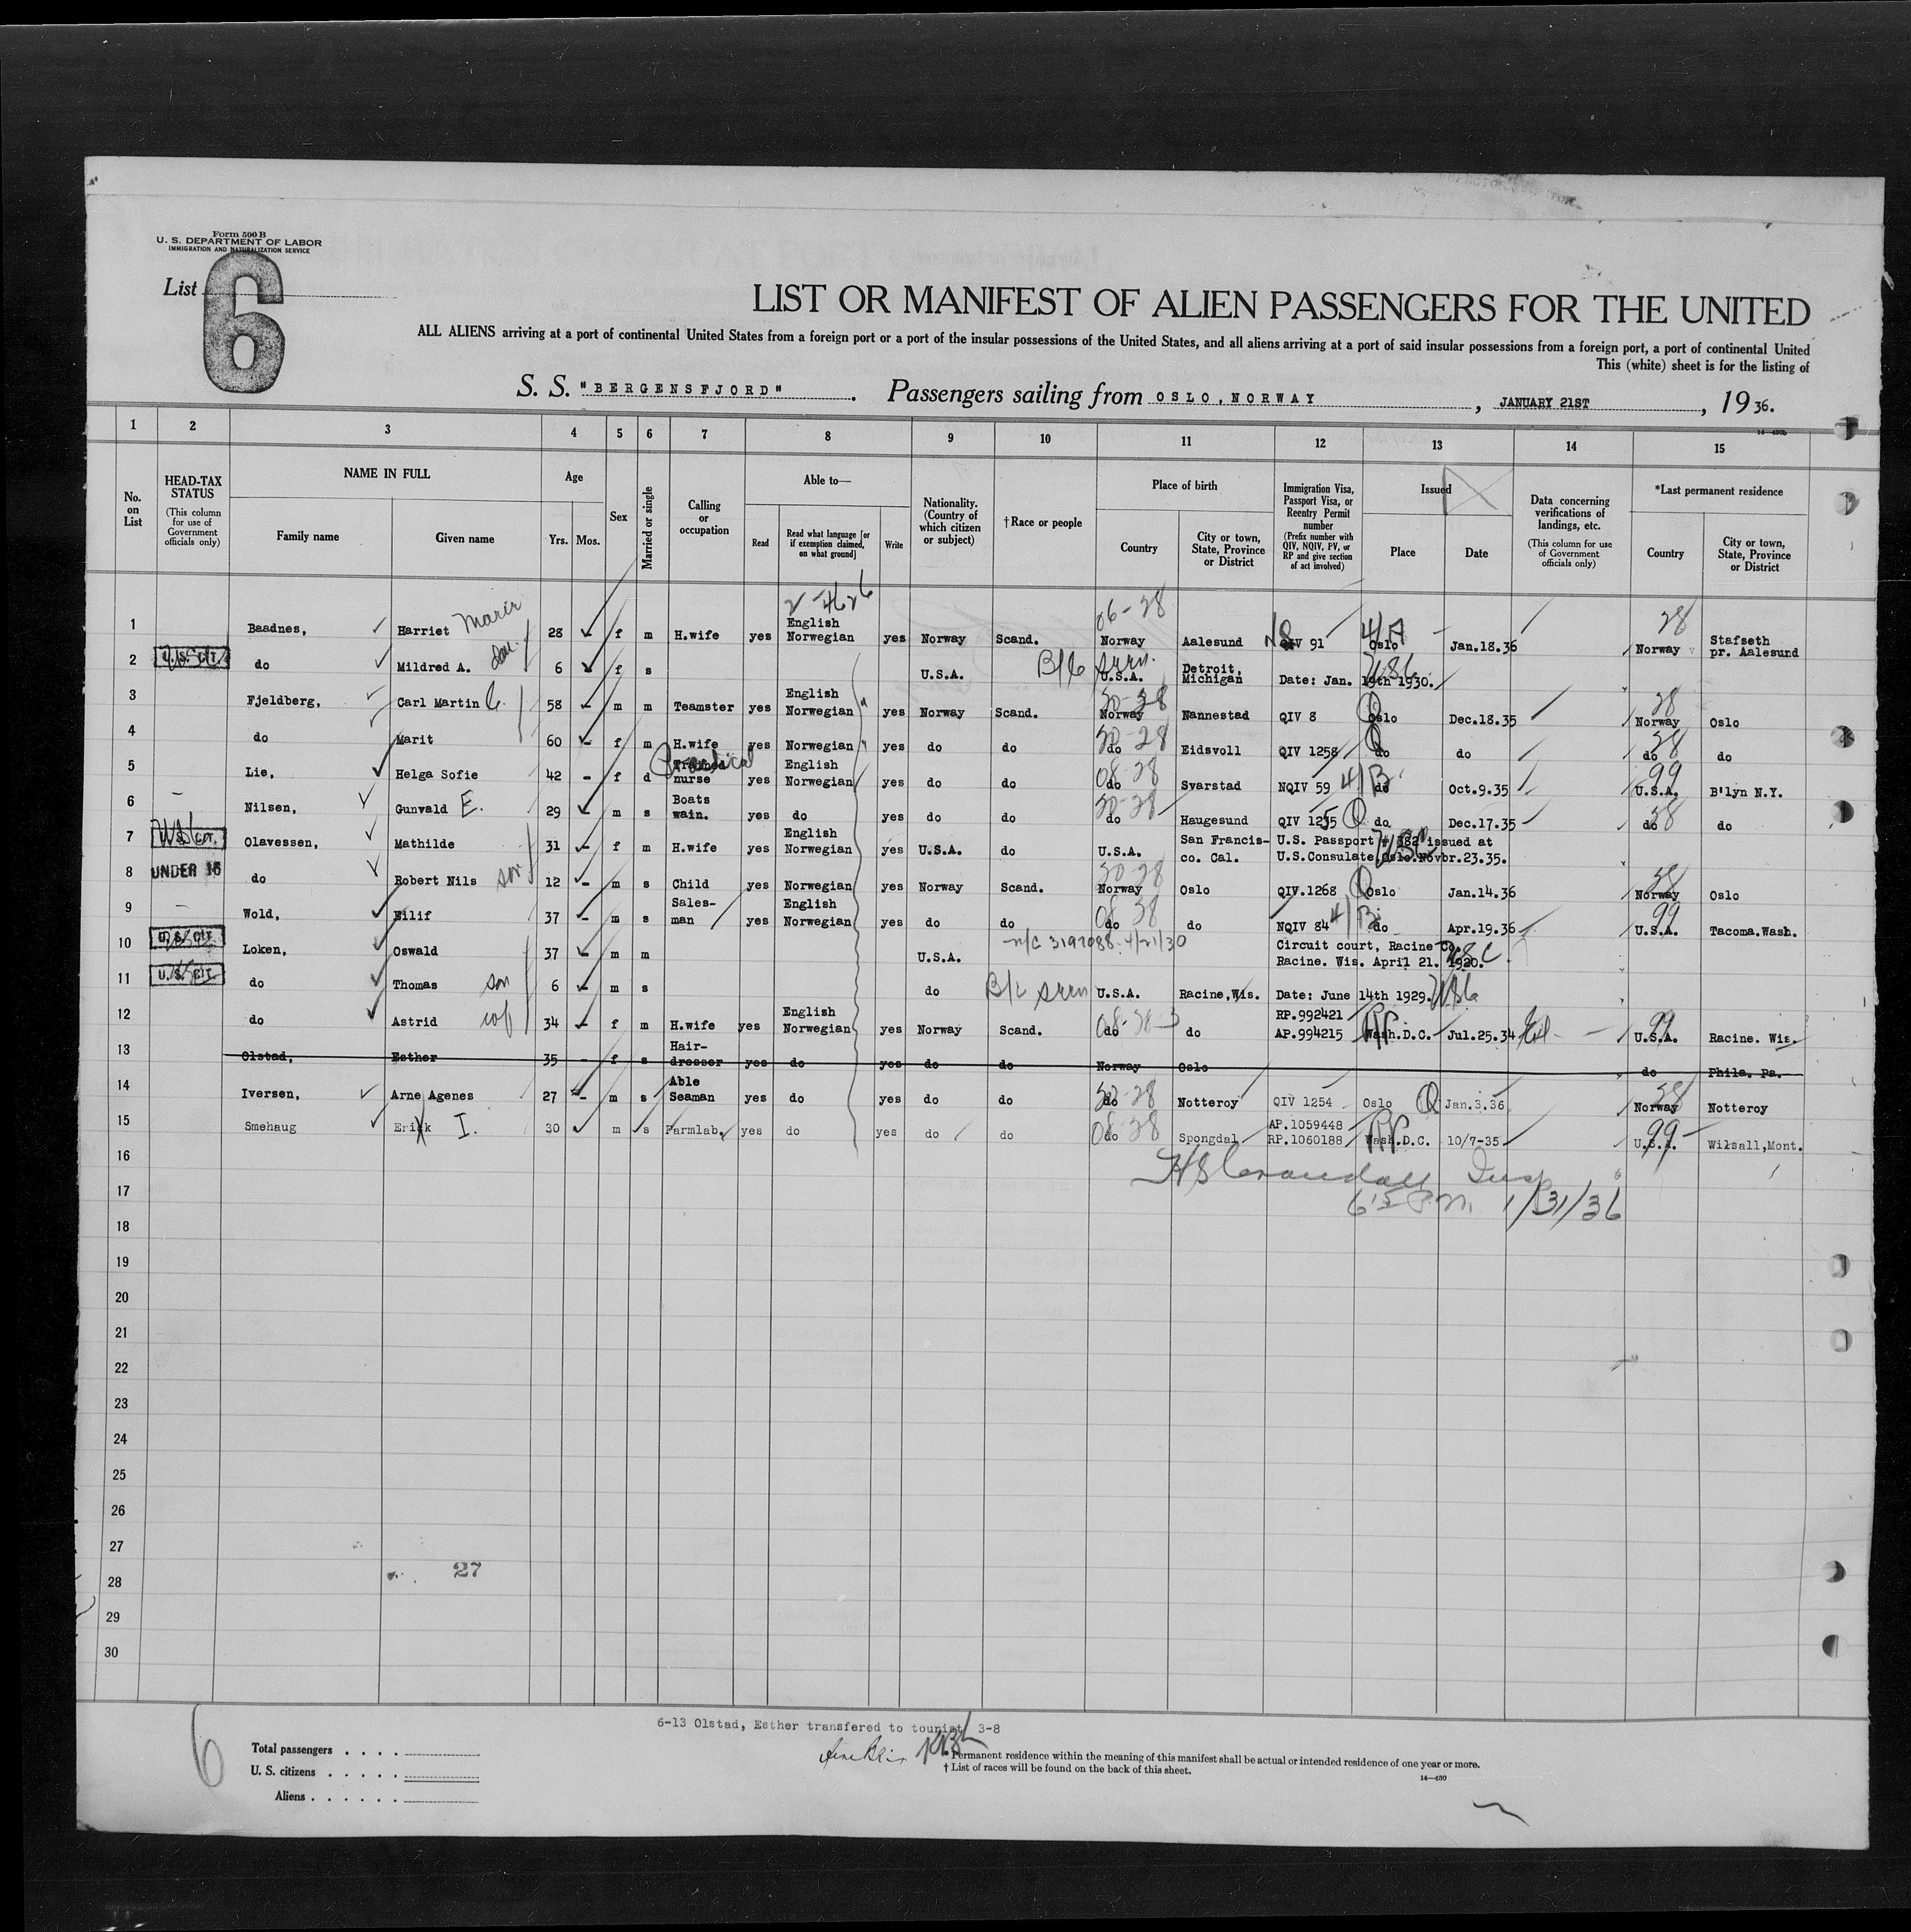 Form 500 B
U. S. DEPARTMENT OF LABOR
IMMIGRATION AND NATURALIZATION SERVICE
List 6
LIST OR MANIFEST OF ALIEN PASSENGERS FOR THE UNITED
ALL ALIENS arriving at a port of continental United States from a foreign port or a port of the insular possessions of the United States, and all aliens arriving at a port of said insular possessions from a foreign port, a port of continental United
This (white) sheet is for the listing of
S. S. "BERGENSFJORD". Passengers sailing from OSLO, NORWAY, JANUARY 21ST, 1936.
14-430b
1 2 3 4 5 6 7 8 9 10 11 12 13 14 15
No. on List
HEAD-TAX STATUS (This column for use of Government officials only)
NAME IN FULL
Family name Given name
Age
Yrs. Mos.
Sex
Married or single
Calling or occupation
Able to—
Read Read what language [or if exemption claimed, on what ground] Write
Nationality. (Country of which citizen or subject)
† Race or people
Place of birth
Country City or town, State, Province or District
Immigration Visa, Passport Visa, or Reentry Permit number (Prefix number with QIV, NQIV, PV, or RP and give section of act involved)
Issued
Place Date
Data concerning verifications of landings, etc. (This column for use of Government officials only)
*Last permanent residence
Country City or town, State, Province or District
1 Baadnes, Harriet Marie 28 - f m H.wife yes English Norwegian yes Norway Scand. 06-28 Norway Aalesund QIV 91 4/A Oslo Jan.18.36 28 Norway Stafseth pr. Aalesund
2 U.S. CIT. do Mildred A. dau. 6 f s U.S.A. B/C seen. U.S.A. Detroit, Michigan Date: Jan. 19th 1930. USC
3 Fjeldberg, Carl Martin C. 58 - m m Teamster yes English Norwegian yes Norway Scand. 30-28 Norway Nannestad QIV 8 Q Oslo Dec.18.35 28 Norway Oslo
4 do Marit 60 - f m H.wife yes Norwegian yes do do 30-28 do Eidsvoll QIV 1258 Q do do 28 do do
5 Lie, Helga Sofie 42 - f d Practical Trained nurse yes English Norwegian yes do do 08-28 do Svarstad NQIV 59 4/B do Oct.9.35 99 U.S.A. B'lyn N.Y.
6 - Nilsen, Gunvald E. 29 m s Boats wain. yes do yes do do 30-28 do Haugesund QIV 1255 Q do Dec.17.35 28 do do
7 U.S. CIT. Olavessen, Mathilde 31 - f m H.wife yes English Norwegian yes U.S.A. do U.S.A. San Francis-co. Cal. U.S. Passport # 382 issued at U.S.Consulate,Oslo.Novbr.23.35. USC
8 UNDER 16 do Robert Nils son 12 - m s Child yes Norwegian yes Norway Scand. 30-28 Norway Oslo QIV.1268 Q Oslo Jan.14.36 28 Norway Oslo
9 - Wold, Eilif 37 - m s Sales-man yes English Norwegian yes do do 08-28 do do NQIV 84 4/B do Apr.19.36 99 U.S.A. Tacoma.Wash.
10 U.S. CIT. Loken, Oswald 37 - m m U.S.A. n/c 3192088-4/21/30 Circuit court, Racine Co. Racine. Wis. April 21. 1920. USC
11 U.S. CIT. do Thomas son 6 - m s do B/C seen U.S.A. Racine,Wis. Date: June 14th 1929. USC
12 do Astrid wf 34 - f m H.wife yes English Norwegian yes Norway Scand. 08-28 do do RP.992421 AP.994215 RP Wash.D.C. Jul.25.34 99 U.S.A. Racine. Wis.
13 Olstad, Esther 35 - f s Hair-dresser yes do yes do do Norway Oslo do Phila. Pa.
14 Iversen, Arne Agenes 27 - m s Able Seaman yes do yes do do 30-28 do Notteroy QIV 1254 Oslo Q Jan.3.36 28 Norway Notteroy
15 Smehaug Erick I. 30 m s Farmlab. yes do yes do do 08-28 do Spongdal AP.1059448 RP.1060188 RP Wash.D.C. 10/7-35 99 U.S.A. Wilsall,Mont.
16 HS Crandall Insp
17 6 15 P.M. 1/31/36
18
19
20
21
22
23
24
25
26
27
28 27
29
30
6-13 Olstad, Esther transfered to tourist 3-8
6
Total passengers . . . .
U. S. citizens . . . . .
Aliens . . . . . .
* Permanent residence within the meaning of this manifest shall be actual or intended residence of one year or more.
† List of races will be found on the back of this sheet.
14-430